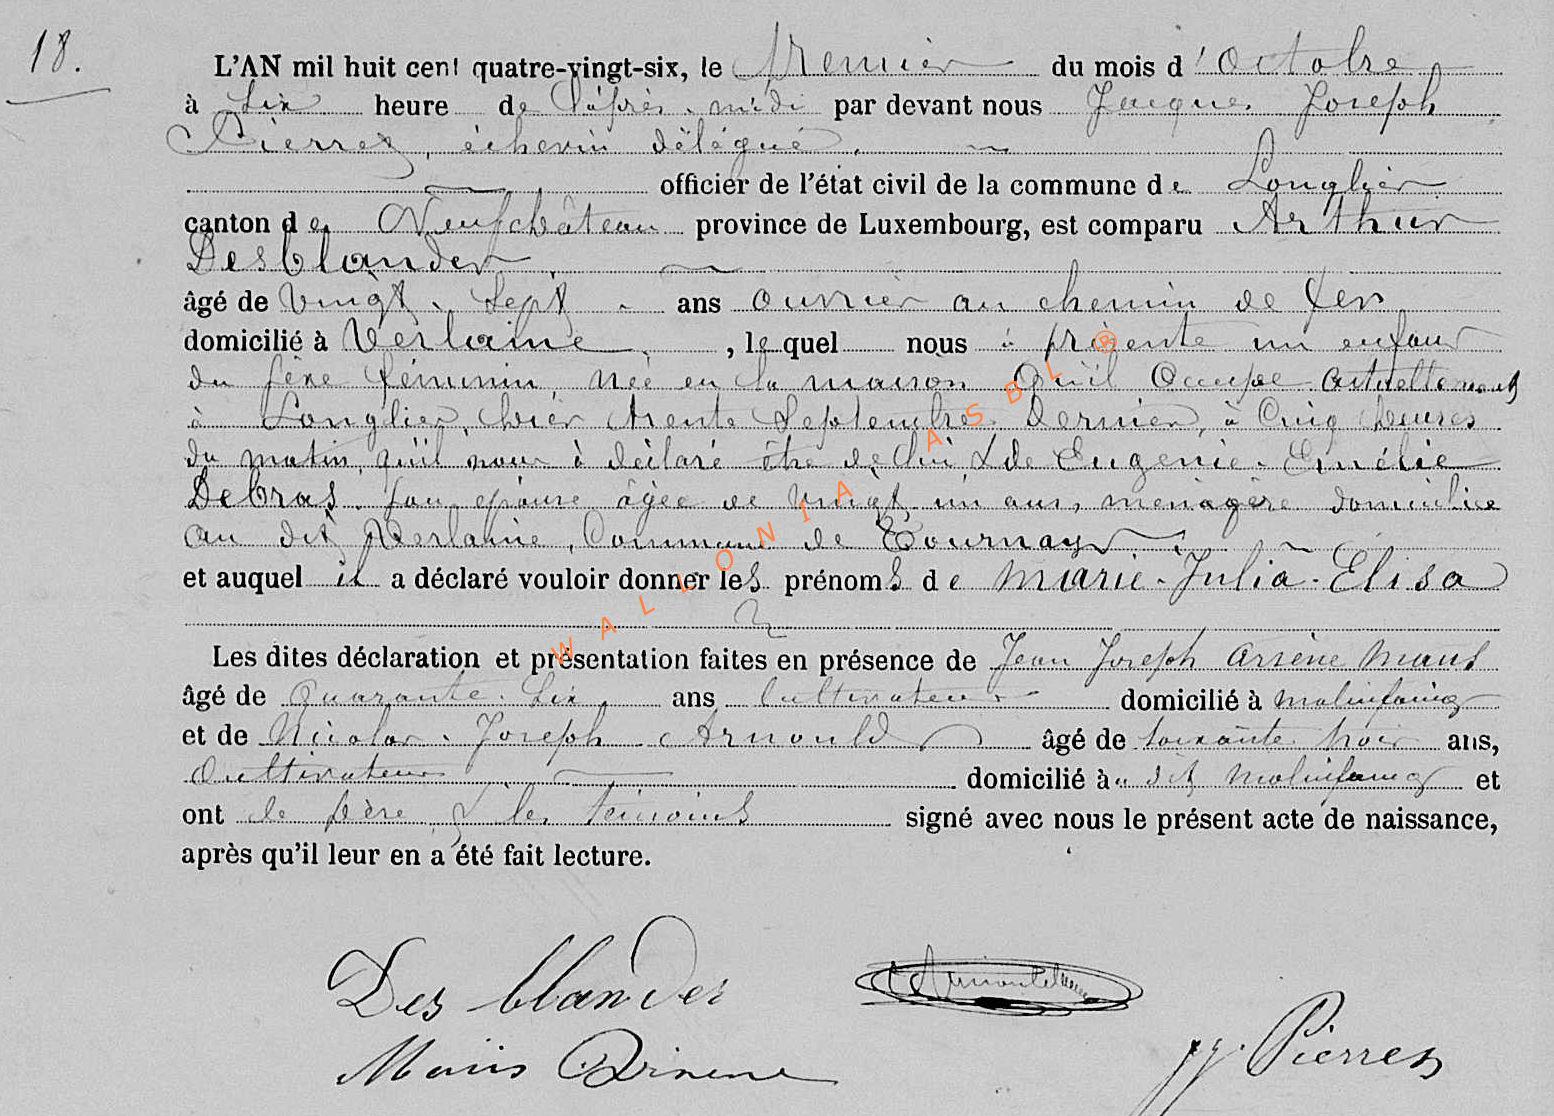 18.
L'AN mil huit cent quatre-vingt-six, le premier du mois d'Octobre
à six heure de l'après-midi par devant nous Jacques Joseph
Pierret, échevin délégué,
officier de l'état civil de la commune de Longlier
canton de Neufchâteau province de Luxembourg, est comparu Arthur
Desblander
âgé de vingt-sept ans ouvrier au chemin de fer
domicilié à Verlaine, lequel nous à présenté un enfant
du sexe féminin née en la maison qu'il occupe actuellement
à Longlier, hier trente Septembre dernier, à cinq heures
du matin, qu'il nous à déclaré être de lui & de Eugenie-Emélie
Debras son épouse âgée de vingt un ans, ménagère domiciliée
au dit Verlaine, Commune de Tournay
et auquel il a déclaré vouloir donner les prénoms de Marie-Julia-Elisa
Les dites déclaration et présentation faites en présence de Jean Joseph Arsène Maus
âgé de quarante-six ans cultivateur domicilié à Molinfaing
et de Nicolas-Joseph Arnould âgé de soixante trois ans,
cultivateur domicilié au dit Molinfaing et
ont le père & les témoins signé avec nous le présent acte de naissance,
après qu'il leur en a été fait lecture.
Des blander
Maus Arsene
JJ. Pierret
WALLONIA ASBL ®